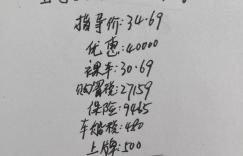 指导价:34.69
优惠:40000
裸车:30.69
购置税:27159
保险:9465
车船税:480
上牌:500